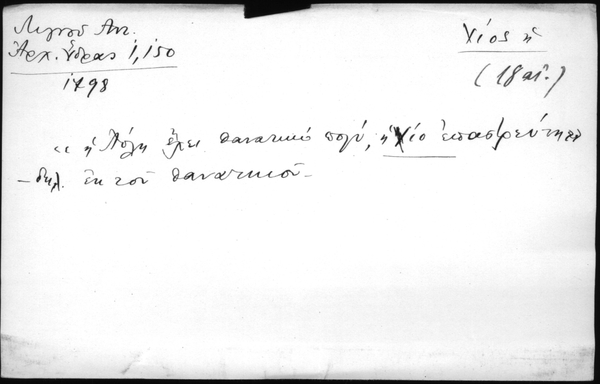 Λιγνοῦ Αντ.
Ἀρχ. Ὕδρας 1,150
1798
Χίος ἡ
(18 αἰ.)
« ἡ Πόλη ἔχει θανατικό πολύ, ἡ Χίο ἐπαστρεύτηκε
– δηλ. ἐκ τοῦ θανατικοῦ –